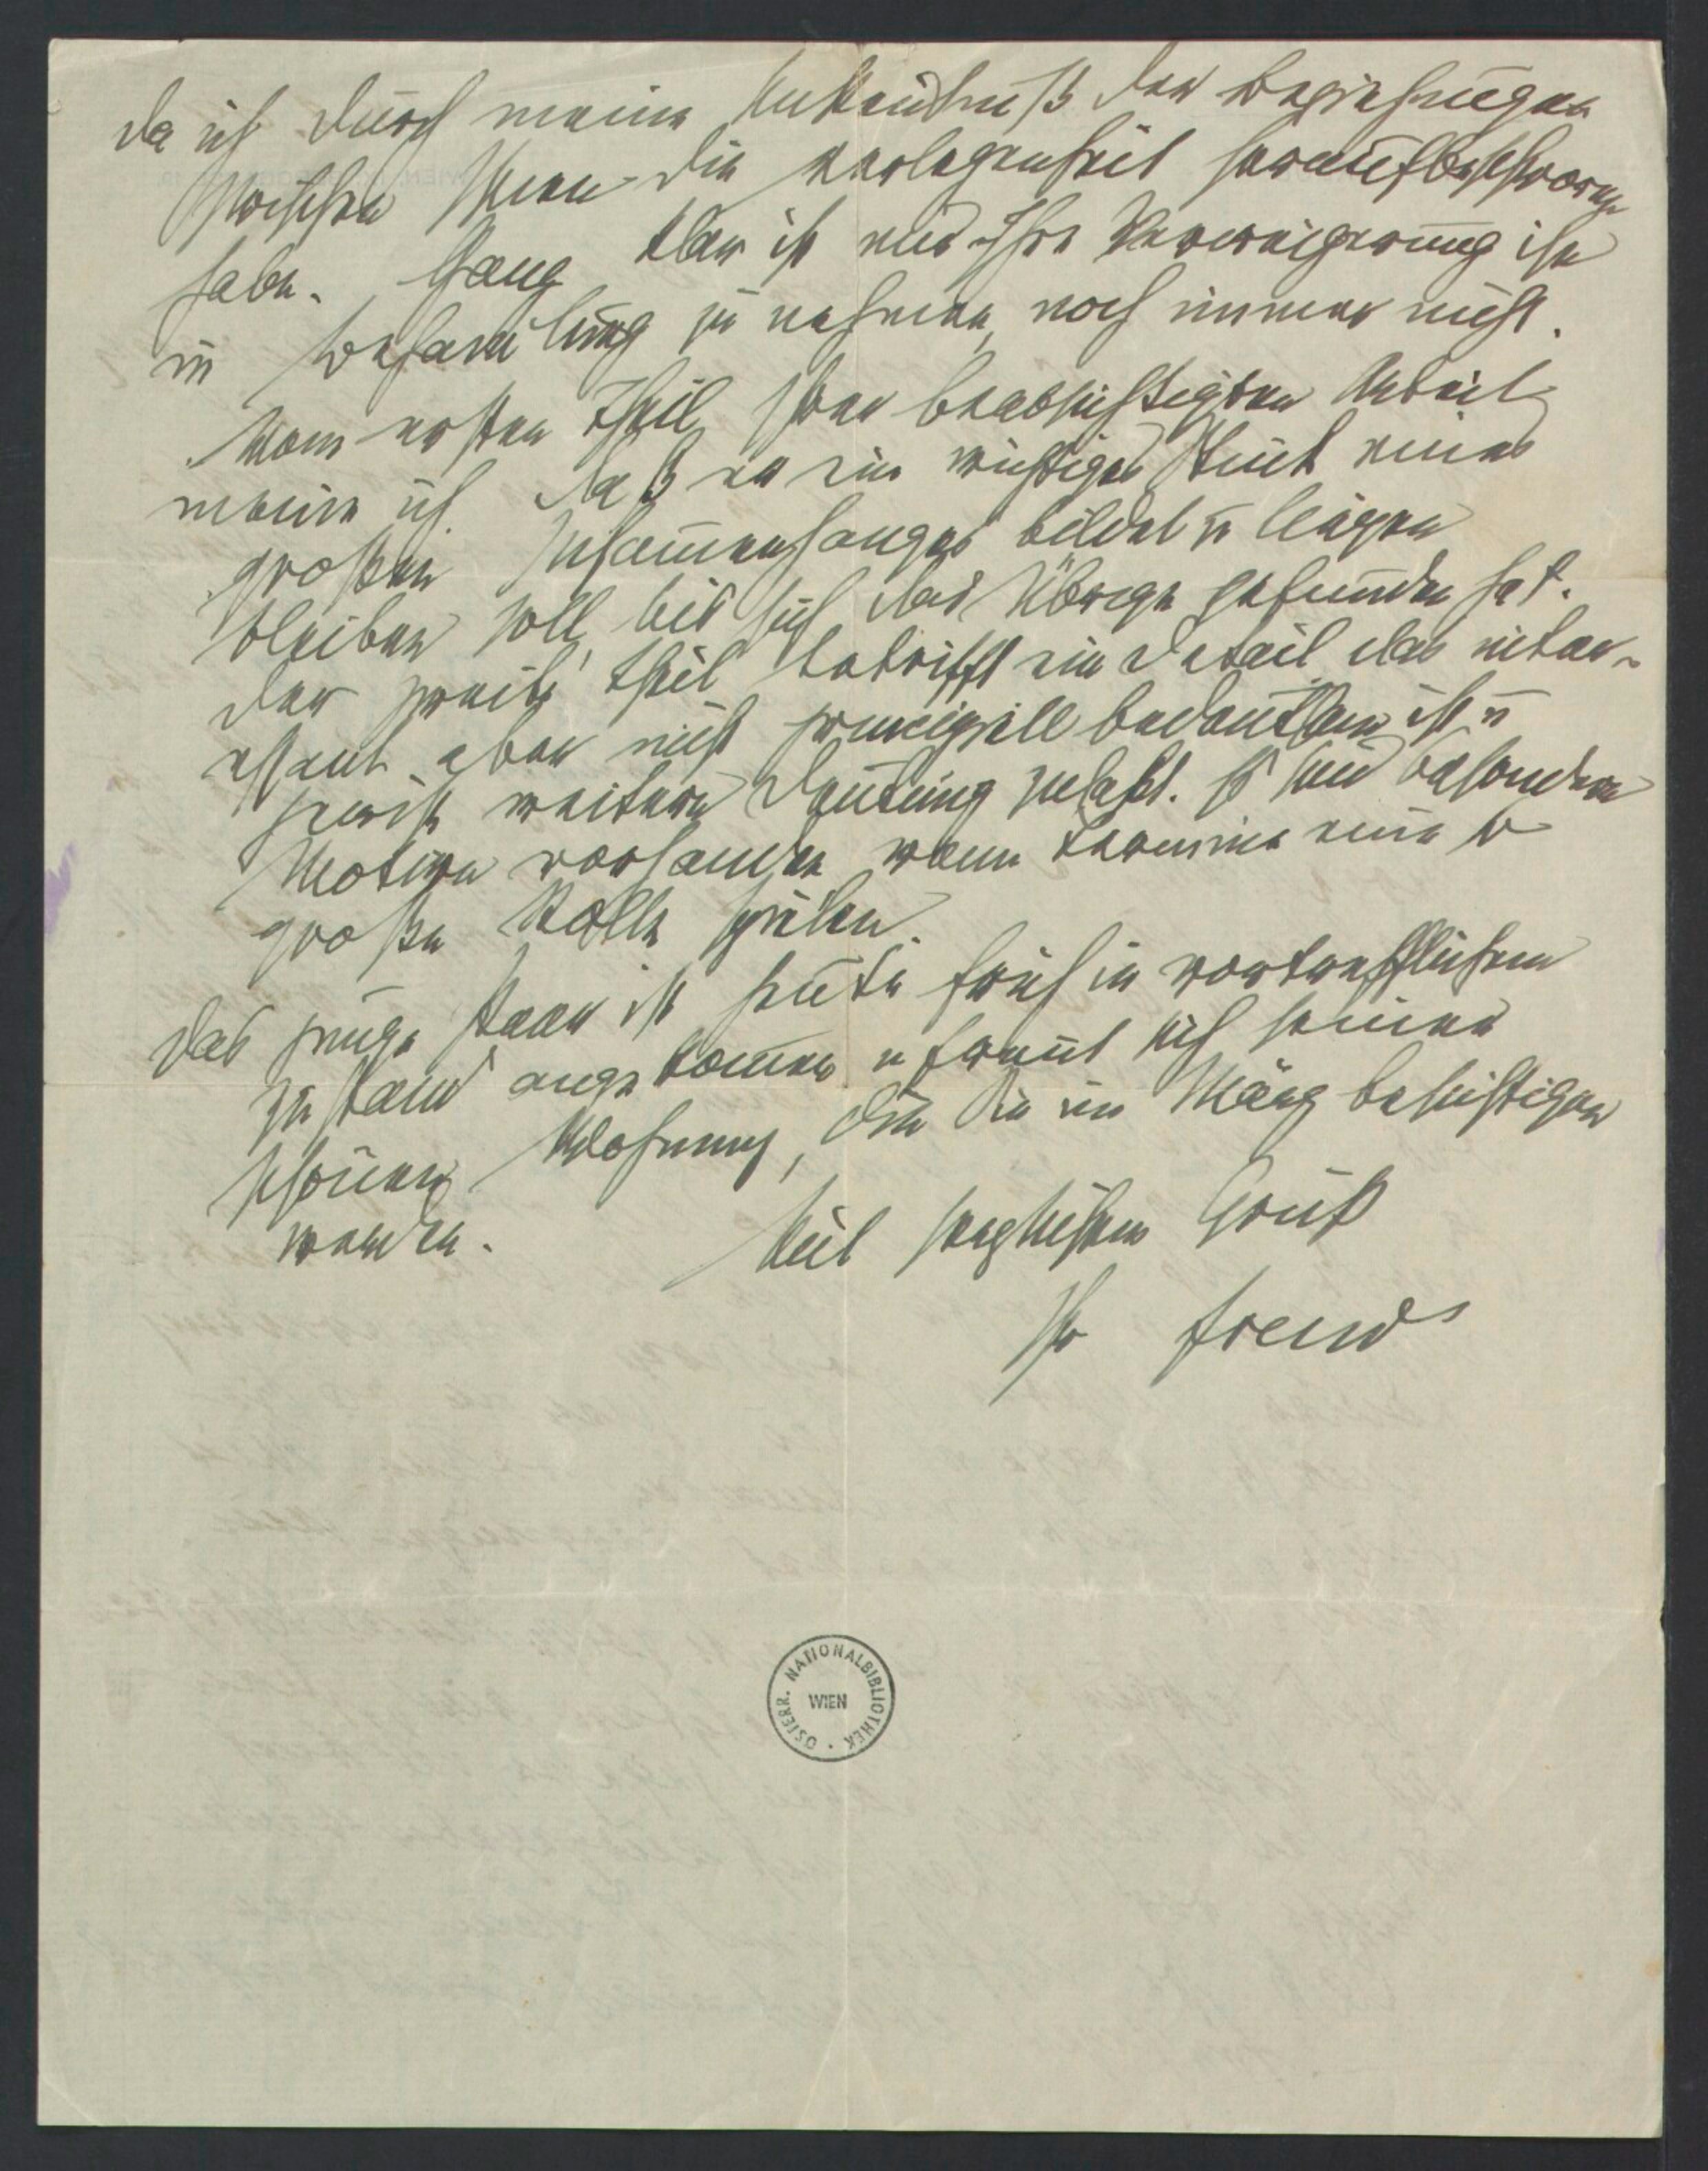 da ich durch meine Unkenntniß der Beziehungen
zwischen Ihnen die Verlegenheit heraufbeschworen
habe. Ganz klar ist mir Ihre Verweigerung ihn
in Behandlung zu nehmen, noch immer nicht.
Vom ersten Theil Ihrer beabsichtigten Arbeit
meine ich daß er ein wichtiges Stück eines
großen Zusammenhanges bildet u liegen
bleiben soll, bis sich das Übrige gefunden hat.
Der zweite Theil betrifft ein Detail das inter-
essant aber nicht principiell bedeutsam ist u
gewiß weitere Deutung zuläßt. Es sind besondere
Motive vorhanden wenn Termine eine so
große Rolle spielen.
Das junge Paar ist heute früh in vortrefflichem
Zustand angekommen u freut sich seiner
schönen Wohnung, die Sie im März besichtigen
werden.
Mit herzlichem Gruß
Ihr Freud
ÖSTERR. NATIONALBIBLIOTHEK
WIEN